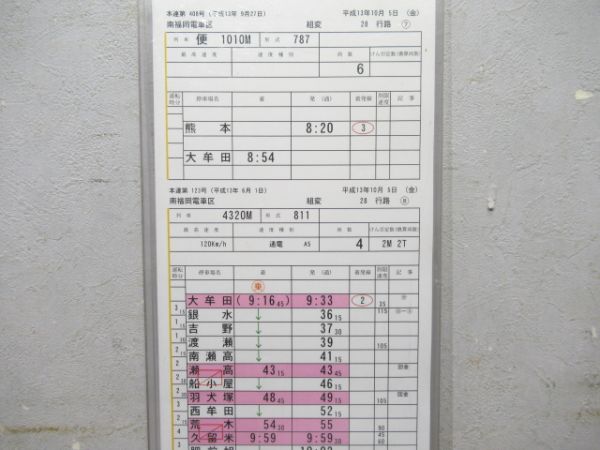 本運第 408号 (平成13年 9月27日) 平成13年10月 5日 (金)
南福岡電車区 組変 28 行路 ⑦
列車 便 1010M 形式 787
最高速度 速度種別 両数 けん引定数(換算両数)
6
運転時分 停車場名 着 発(通) 着発線 制限速度 記事
熊本 8:20 3
大牟田 8:54
本運第 123号 (平成13年 6月 1日) 平成13年10月 5日 (金)
南福岡電車区 組変 28 行路 ⑧
列車 4320M 形式 811
最高速度 速度種別 両数 けん引定数(換算両数)
120Km/h 通電 A5 4 2M 2T
運転時分 停車場名 着 発(通) 着発線 制限速度 記事
大牟田 (9:16 45) 9:33 2 35
115
3 15 銀水 ↓ 36 15
1 15 吉野 ↓ 37 30
渡瀬 ↓ 39 105
南瀬高 ↓ 41 15
瀬高 43 15 43 45
船小屋 ↓ 46 15
羽犬塚 48 45 49 15
105
西牟田 ↓ 52 15
荒木 54 30 55 90
久留米 9:59 9:59 30 45 60